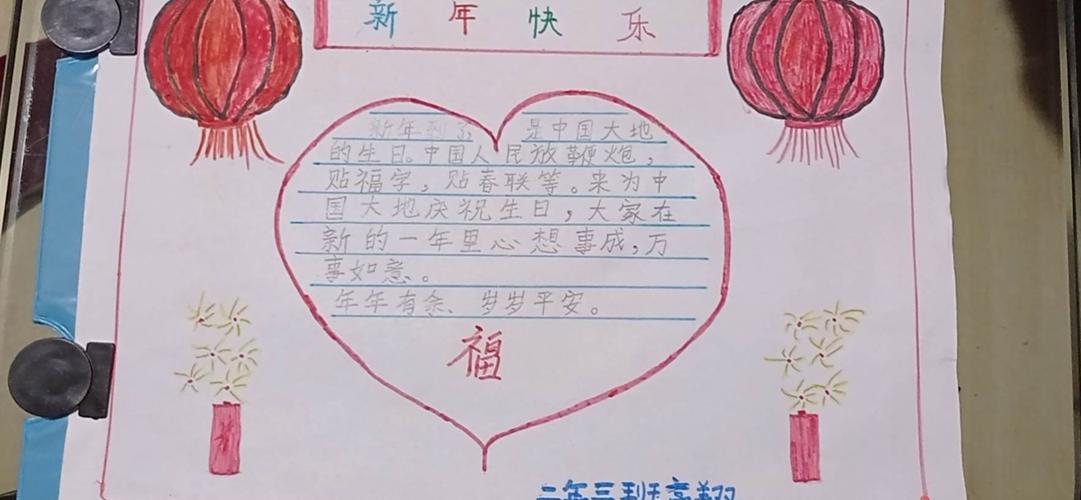 新年快乐
新年到了，是中国大地
的生日。中国人民放鞭炮，
贴福字，贴春联等。来为中
国大地庆祝生日，大家在
新的一年里心想事成，万
事如意。
年年有余、岁岁平安。
福
二年三班高翔